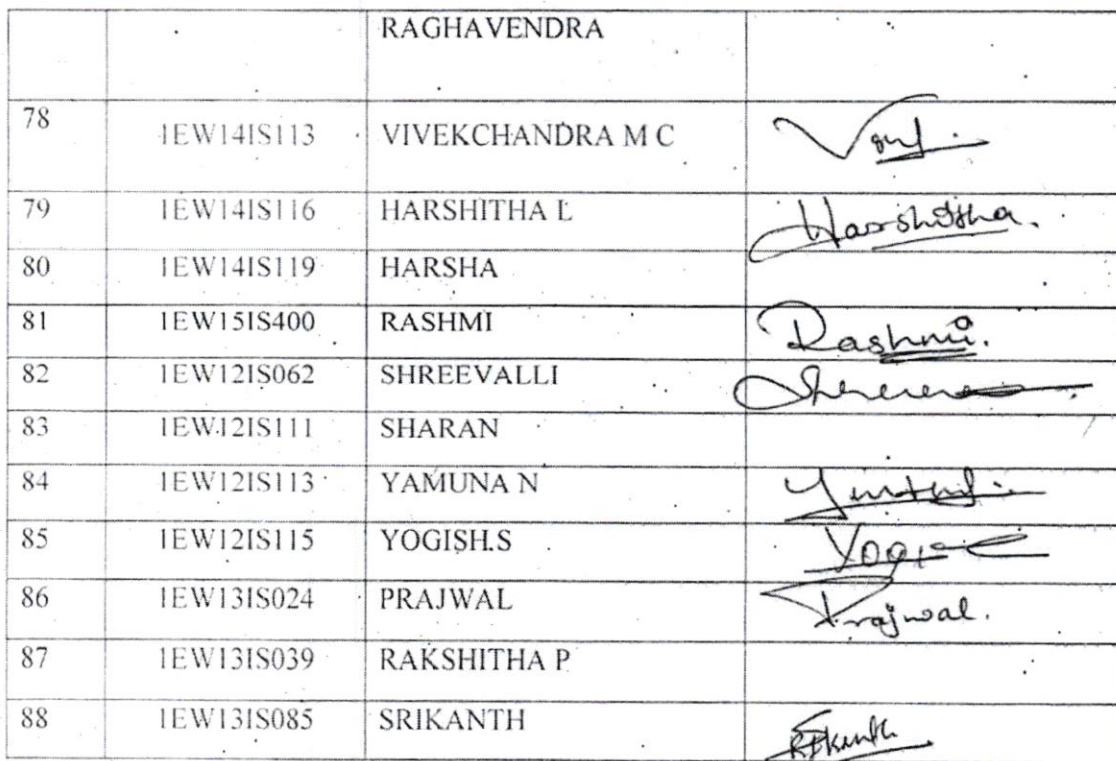 RAGHAVENDRA
78 1EW14IS113 VIVEKCHANDRA M C
79 1EW14IS116 HARSHITHA L Harshitha.
80 1EW14IS119 HARSHA
81 1EW15IS400 RASHMI Rashmi.
82 1EW12IS062 SHREEVALLI
83 1EW12IS111 SHARAN
84 1EW12IS113 YAMUNA N
85 1EW12IS115 YOGISH.S
86 1EW13IS024 PRAJWAL Prajwal.
87 1EW13IS039 RAKSHITHA P
88 1EW13IS085 SRIKANTH